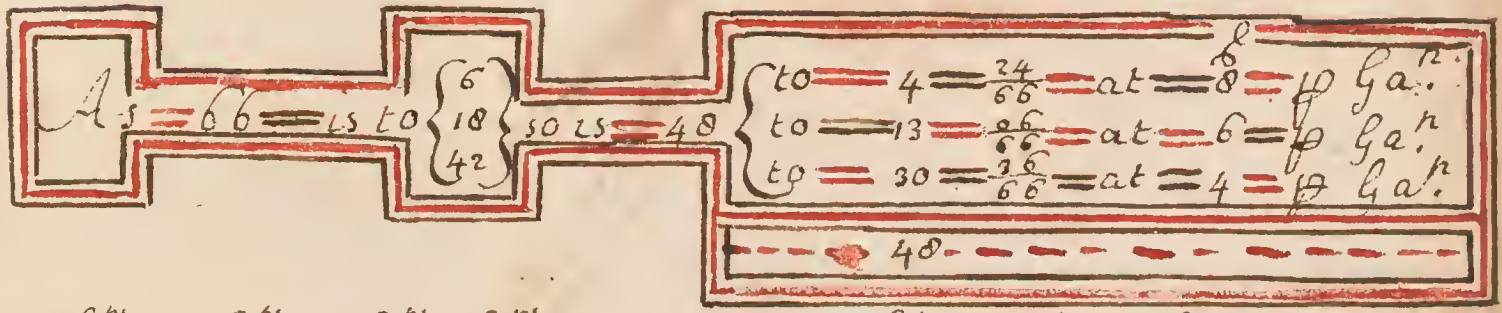 As = 66 = is to { 6 18 42 } so is = 48
{ to = 4 = 24/66 = at = 8 = ⅌ Gaⁿ.
to = 13 = 06/66 = at = 6 = ⅌ Gaⁿ.
to = 30 = 36/66 = at = 4 = ⅌ Gaⁿ.
48